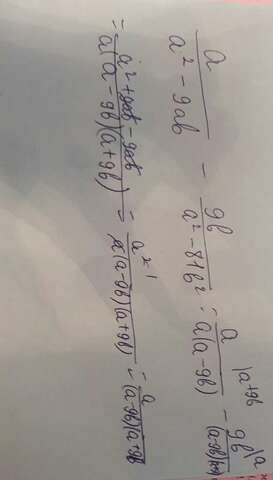 a/(a² - 9ab) - 9b/(a² - 81b²) = a/(a(a-9b)) |a+9b - 9b/((a-9b)(a+9b)) |a
= (a² + 9ab - 9ab)/(a(a-9b)(a+9b)) = a²/(a(a-9b)(a+9b)) = a/((a-9b)(a+9b))